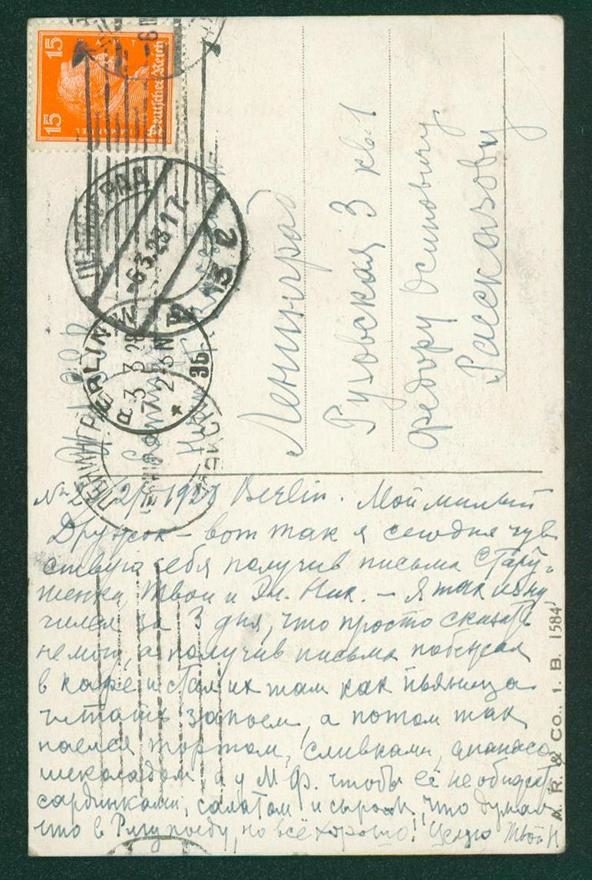 15 15
Deutsches Reich
ЛЕНИНГРАД
-6.3.28 17.
BERLIN
3.3.28
2-3 N
36
Ленинград
Рузовская 3 кв. 1
Федору Осиповичу
Рассказову
1928 Berlin. Мой милый
Дружок – вот так я сегодня чув
ствую себя получив письма Стару-
шенки, Твои и Эл. Ник. – Я так изму
чился за 3 дня, что просто сказать
не могу, а получив письма побежал
в кафе и стал их там как пьяница
читать запоем, а потом так
наелся тортом, сливками, ананасо
шеколадом а у М. Ф. чтобы её не обидеть
сардинками, салатом и сыром, что думал
что в Ригу поеду, но всё хорошо! Целую Твой
A. R. & CO., I. B. 1584